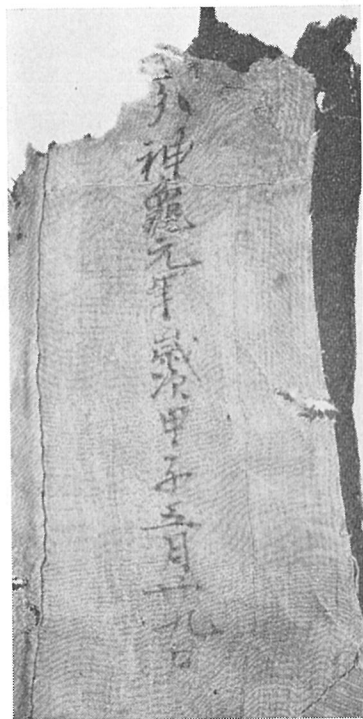 神龜元年歲次甲子五月十九日